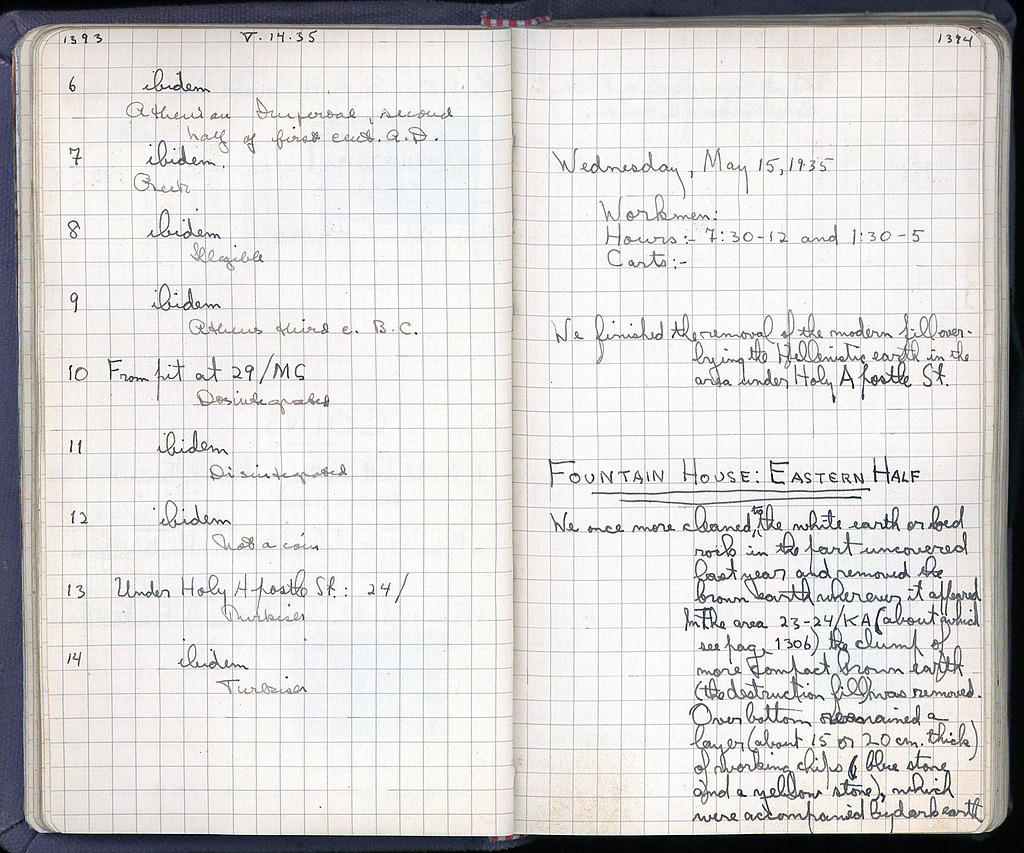 1393 V.14.35
6 ibidem
Athenian Imperial, second
half of first cent. A.D.
7 ibidem.
Greek
8 ibidem
Illegible
9 ibidem
Athens third c. B.C.
10 From pit at 29/ΜΣ
Disintegrated
11 ibidem
Disintegrated
12 ibidem
Not a coin
13 Under Holy Apostle St.: 24/
Turkish
14 ibidem
Turkish
1394
Wednesday, May 15, 1935
Workmen:
Hours:- 7:30-12 and 1:30-5
Carts:-
We finished the removal of the modern fill over-
lying the Hellenistic earth in the
area under Holy Apostle St.
FOUNTAIN HOUSE: EASTERN HALF
We once more cleaned, to the white earth or bed
rock in the part uncovered
last year and removed the
brown earth wherever it appeared
In the area 23-24/ΚΑ (about which
see page 1306) the clump of
more compact brown earth
(the destruction fill) was removed.
Over bottom remained a
layer (about 15 or 20 cm. thick)
of working chips ( blue stone
and a yellow stone), which
were accompanied by dark earth